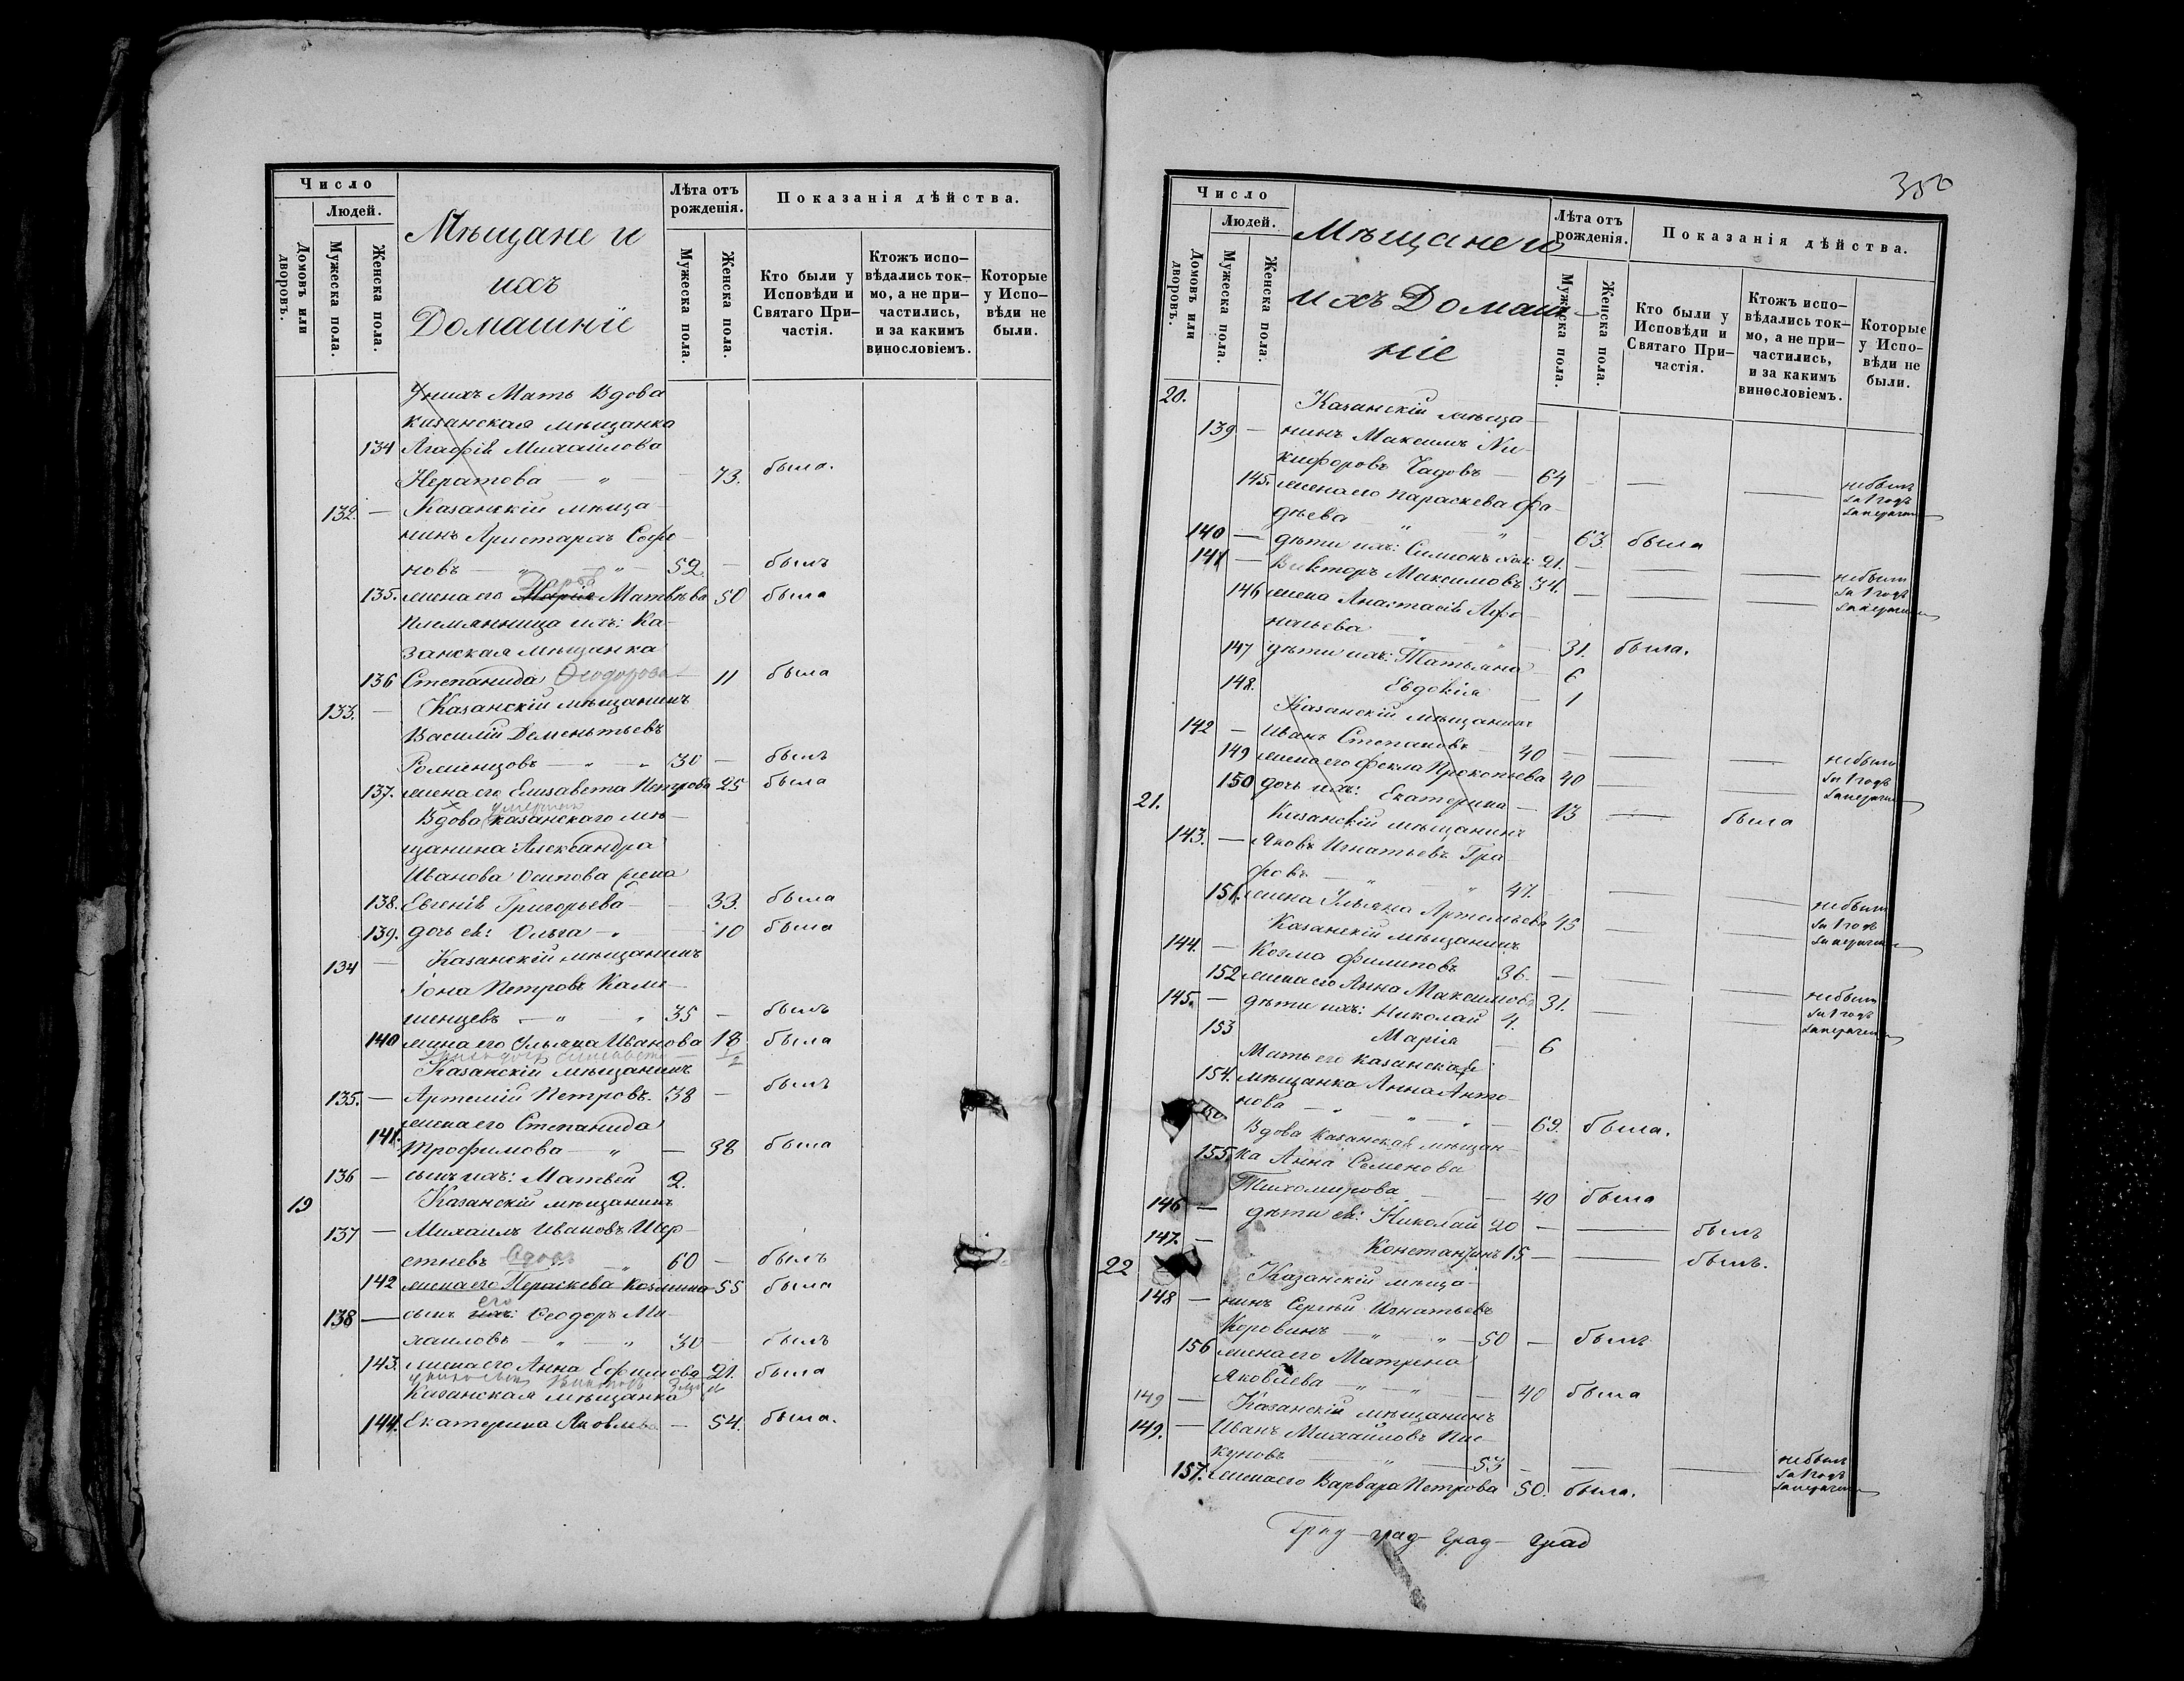 Число
Людей.
Домовъ или дворовъ.
Мужеска пола.
Женска пола.
Мѣщане и
ихъ
Домашніе
Лѣта отъ рожденія.
Мужеска пола.
Женска пола.
Показанія дѣйства.
Кто были у Исповѣди и Святаго При-частія.
Ктожъ испо-вѣдались ток-мо, а не при-частились, и за какимъ винословіемъ.
Которые у Испо-вѣди не были.
У нихъ Мать Вдова
казанская мѣщанка
134 Агафія Михаилова
Нератова — " — — 73. была.
132. — Казанскій мѣща-
нинъ Аристархъ Софо-
новъ — " — " — 52 — былъ
135. жена его Марія Дарья Матвѣева 50 была
племянница ихъ: Ка-
занская мѣщанка
136 Степанида Ѳеодорова — 11 была
133. — Казанскій мѣщанинъ
Василій Дементьевъ
Роменцовъ — " — " 30 — былъ
137. жена его Елизавета Петрова 25 была
Вдова умершаго казанскаго мѣ-
щанина Александра
Иванова Осипова жена
138. Евгенія Григорьева — — 33. была
139. дочь ея: Ольга — " 10 была
134 — Казанскій мѣщанинъ
Іона Петровъ Каме-
шенцевъ — " — " 35 — былъ
140 жена его Ульяна Иванова 18 была
Казанскій мѣщанинъ
135. — Артемій Петровъ. 38 — былъ
жена его Степанида
141. Трофимова — " — 38 была
136 — сынъ ихъ: Матвѣй 2.
19 Казанскій мѣщанинъ
137 — Михаилъ Ивановъ Шер-
стневъ вдовъ " 60 — былъ
142 жена его Параскева Козмина 55 была
138 — сынъ ихъ: его Ѳеодоръ Ми-
хаиловъ — " — " 30 — былъ
143. жена его Анна Ефимова 21. была
Казанская мѣщанка
144. Екатерина Яковлева — 54. была.
350
Число
Людей.
Домовъ или дворовъ.
Мужеска пола.
Женска пола.
Мѣщане и
ихъ Домаш-
ніе
Лѣта отъ рожденія.
Мужеска пола.
Женска пола.
Показанія дѣйства.
Кто были у Исповѣди и Святаго При-частія.
Ктожъ испо-вѣдались ток-мо, а не при-частились, и за какимъ винословіемъ.
Которые у Испо-вѣди не были.
20. Казанскій мѣща-
139 — нинъ Максимъ Ни-
кифоровъ Чадовъ — 64 — — — не былъ
145. жена его Параскева Фа-
дѣева — " — " — 63. была
140 — дѣти ихъ: Симіонъ хол: 21. — — —
141 — Викторъ Максимовъ 34. — — — не были
146 жена Анастасія Афо-
насьева — " — " — 31. была.
147 дѣти ихъ: Татьяна — 6
148. Евдокія — 1
Казанскій мѣщанинъ
142 — Иванъ Степановъ — 40 — — — не были
149 жена его Фекла Прокопьева 40 — —
150 дочь ихъ: Екатерина — 13 — была
21. Казанскій мѣщанинъ
143. — Яковъ Игнатьевъ Гра-
фовъ — " — " 47. — — не были
151. жена Ульяна Артемьева 45 — —
Казанскій мѣщанинъ
144. — Козма Филиповъ 36. — — — не были
152 жена его Анна Максимова 31. — —
145. — дѣти ихъ: Николай 4.
153 Марія — 6
Мать его казанская
154. мѣщанка Анна Анто-
нова — " — " — 69. была.
Вдова казанская мѣщан-
155. ка Анна Семенова
Тихомирова — — 40 была
146 — дѣти ея: Николай 20 — — былъ
147. — Константинъ 15 — — былъ.
22 Казанскій мѣща-
148 — нинъ Сергѣй Игнатьевъ
Коровинъ — " — " — 50 — былъ
156 жена его Матрена
Яковлева — " — " — 40 была
149 — Казанскій мѣщанинъ
149. — Иванъ Михаиловъ Пис-
куновъ — " — 53 — — — не былъ
157. жена его Варвара Петрова 50. была.
Град — град — Град — град